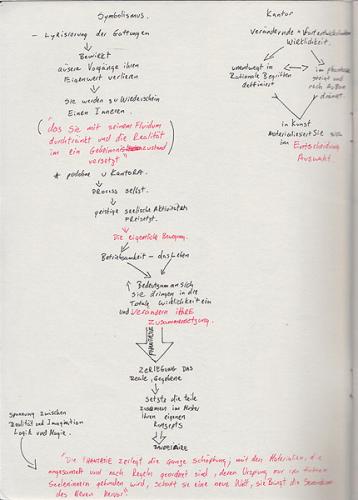 Symbolismus.
- Lyrisierung der Gattungen
Bewirkt
äusere Vorgänge ihren
Eigenwert verlieren
Sie werden zu Wiederschein
Einen Inneren.
(das Sie mit seinem Fluidum
durchtränkt und die Realität
im ein Geheimniszustand
versetzt")
* podobne u Kantora.
Process selbst.
geistige seelische Aktivitäts
Freisetzt.
Die eigentliche Bewegung.
Betriebsamkeit - das Leben
Bedeutung man sich
Sie dringen in die
Totale Wirklichkeit ein
und verändern ihre
Zusammensetzung.
Phantasie
Zerlegung das
Reale, Gegebene
Setzt die teile
zusammen im
ihren eigenen
Konzepts
Spannung zwischen
Realität und Imagination
Logik und Magie.
"Die Phantasie zerlegt die Ganze Schöpfung, mit den Materialien, die
angesammelt und nach Regeln geordnet sind, deren Ursprung nur im tiefsten
Seeleninnern gefunden wird, schafft sie eine neue Welt, sie
des Neuen hervor"
Kantor
Verändernde
Wirklichkeit.
unentwegt in
Rationale Begriffen
definiert
im
steigt und
nach Außen
drängt.
in Kunst
Materialisiert Sie sich
im Entscheidung
Auswahl.